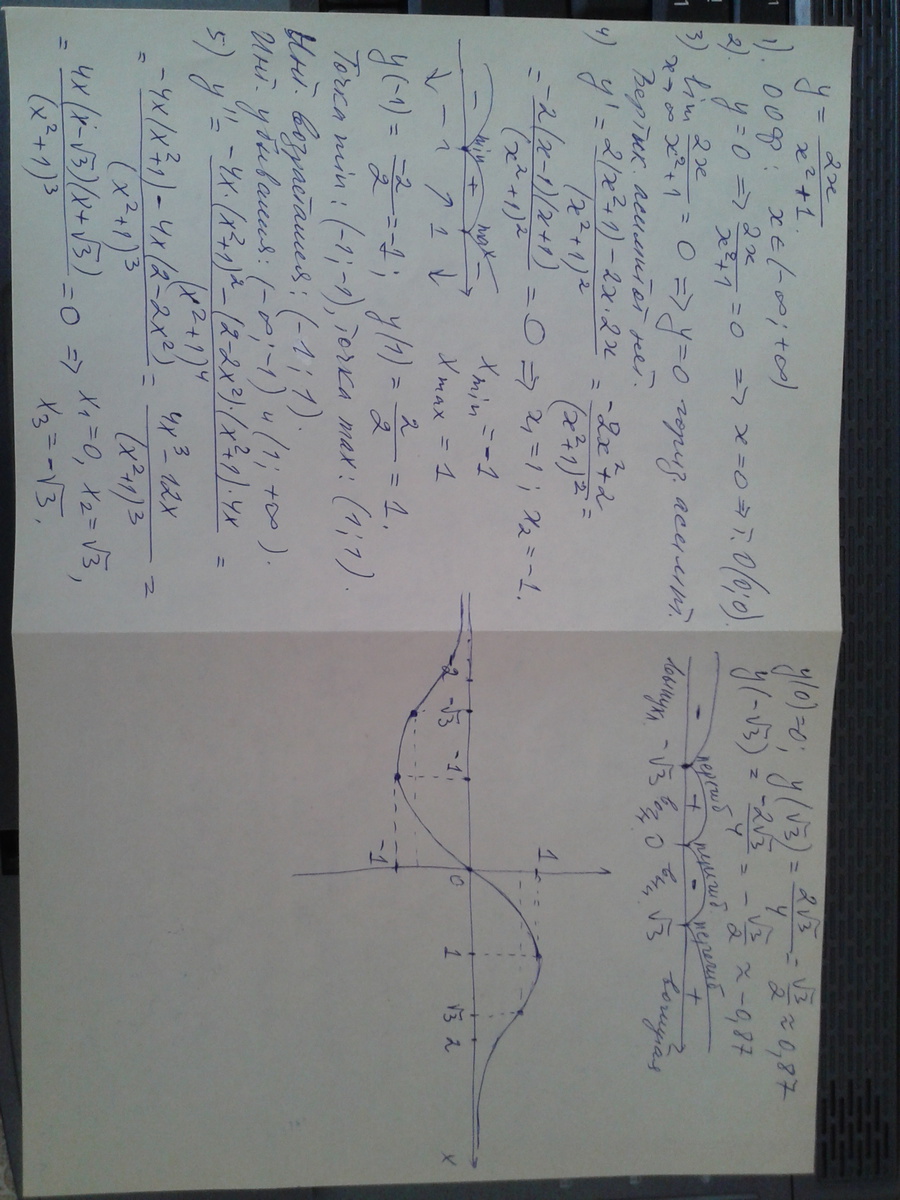 y = 2x/(x²+1).
1). ООФ: x∈(-∞;+∞)
2). y=0 ⇒ 2x/(x²+1) = 0 ⇒ x=0 ⇒ т. O(0;0).
3) lim x→∞ 2x/(x²+1) = 0 ⇒ y=0 гориз. асимпт.
Вертик. асимптот нет.
4) y' = (2(x²+1) - 2x·2x)/(x²+1)² = (-2x²+2)/(x²+1)² =
= -2(x-1)(x+1)/(x²+1)² = 0 ⇒ x₁=1; x₂=-1.
- min + max -
↓ -1 ↑ 1 ↓
x min = -1
x max = 1
y(-1) = -2/2 = -1; y(1) = 2/2 = 1.
Точка min: (-1;-1), точка max: (1;1).
Инт. возрастания: (-1;1).
Инт. убывания: (-∞;-1) и (1;+∞).
5) y'' = (-4x·(x²+1)² - (2-2x²)·(x²+1)·4x)/(x²+1)⁴ =
= (-4x(x²+1) - 4x(2-2x²))/(x²+1)³ = (4x³-12x)/(x²+1)³ =
= 4x(x-√3)(x+√3)/(x²+1)³ = 0 ⇒ x₁=0, x₂=√3,
x₃=-√3.
y(0)=0; y(√3) = 2√3/4 = √3/2 ≈ 0,87
y(-√3) = -2√3/4 = -√3/2 ≈ -0,87
- перегиб + перегиб - перегиб +
выпукл -√3 0 √3 вогнутая
1
-2 -√3 -1 0 1 √3 2 x
-1